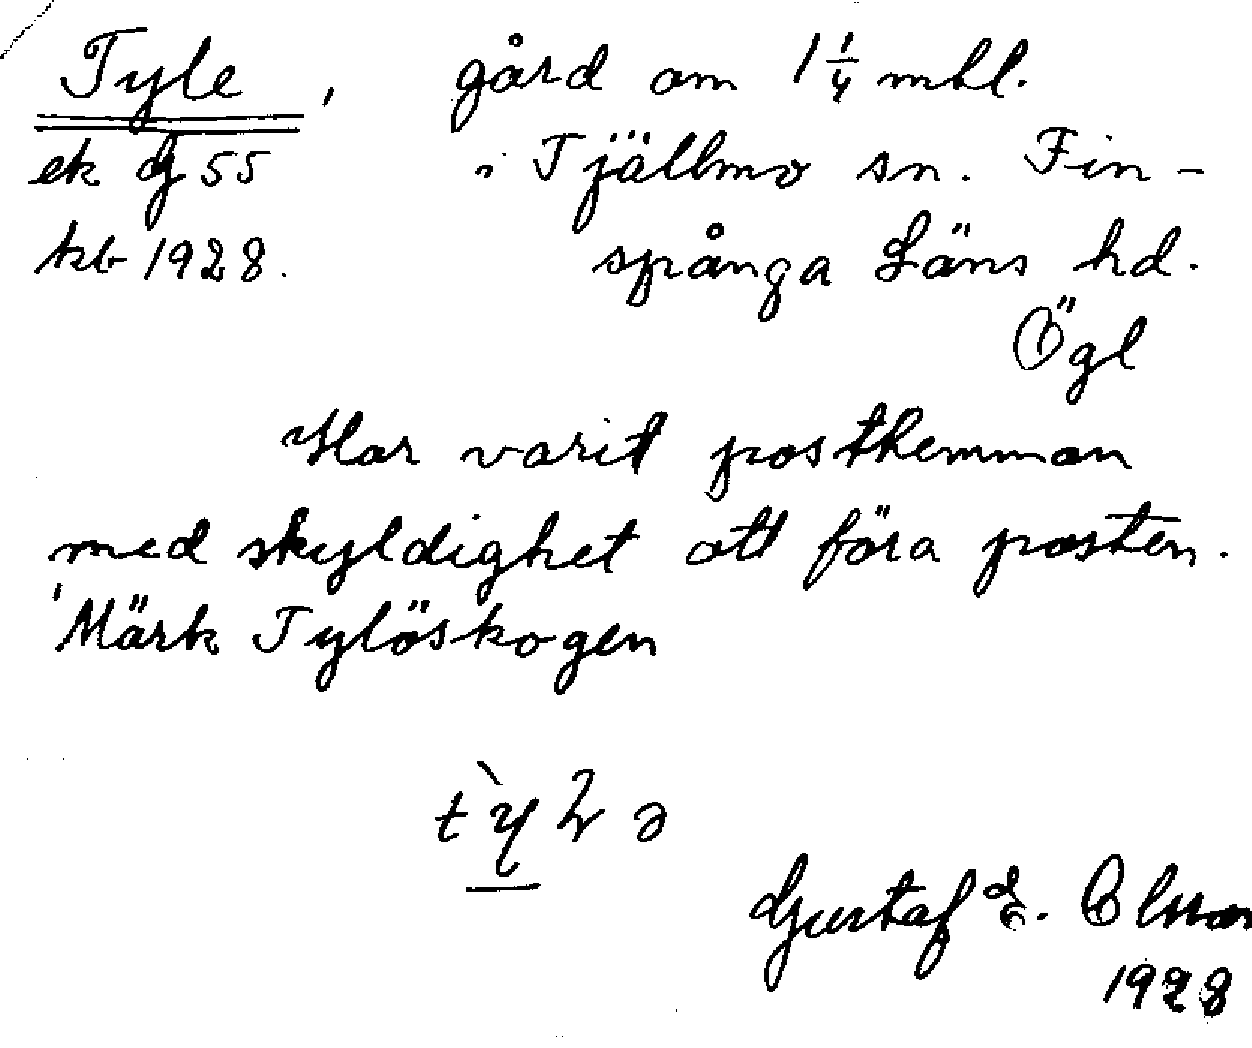 Tyle, gård om 1 1/4 mtl.
ek dj 55 i Tjällmo sn. Fin-
kb 1928. spånga Läns hd.
Ögl
Har varit posthemman
med skyldighet att föra posten.
Märk Tylöskogen
Gustaf E. Olsson
1928